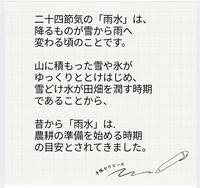 二十四節気の「雨水」は、
降るものが雪から雨へ
変わる頃のことです。
山に積もった雪や氷が
ゆっくりととけはじめ、
雪どけ水が田畑を潤す時期
であることから、
昔から「雨水」は、
農耕の準備を始める時期
の目安とされてきました。